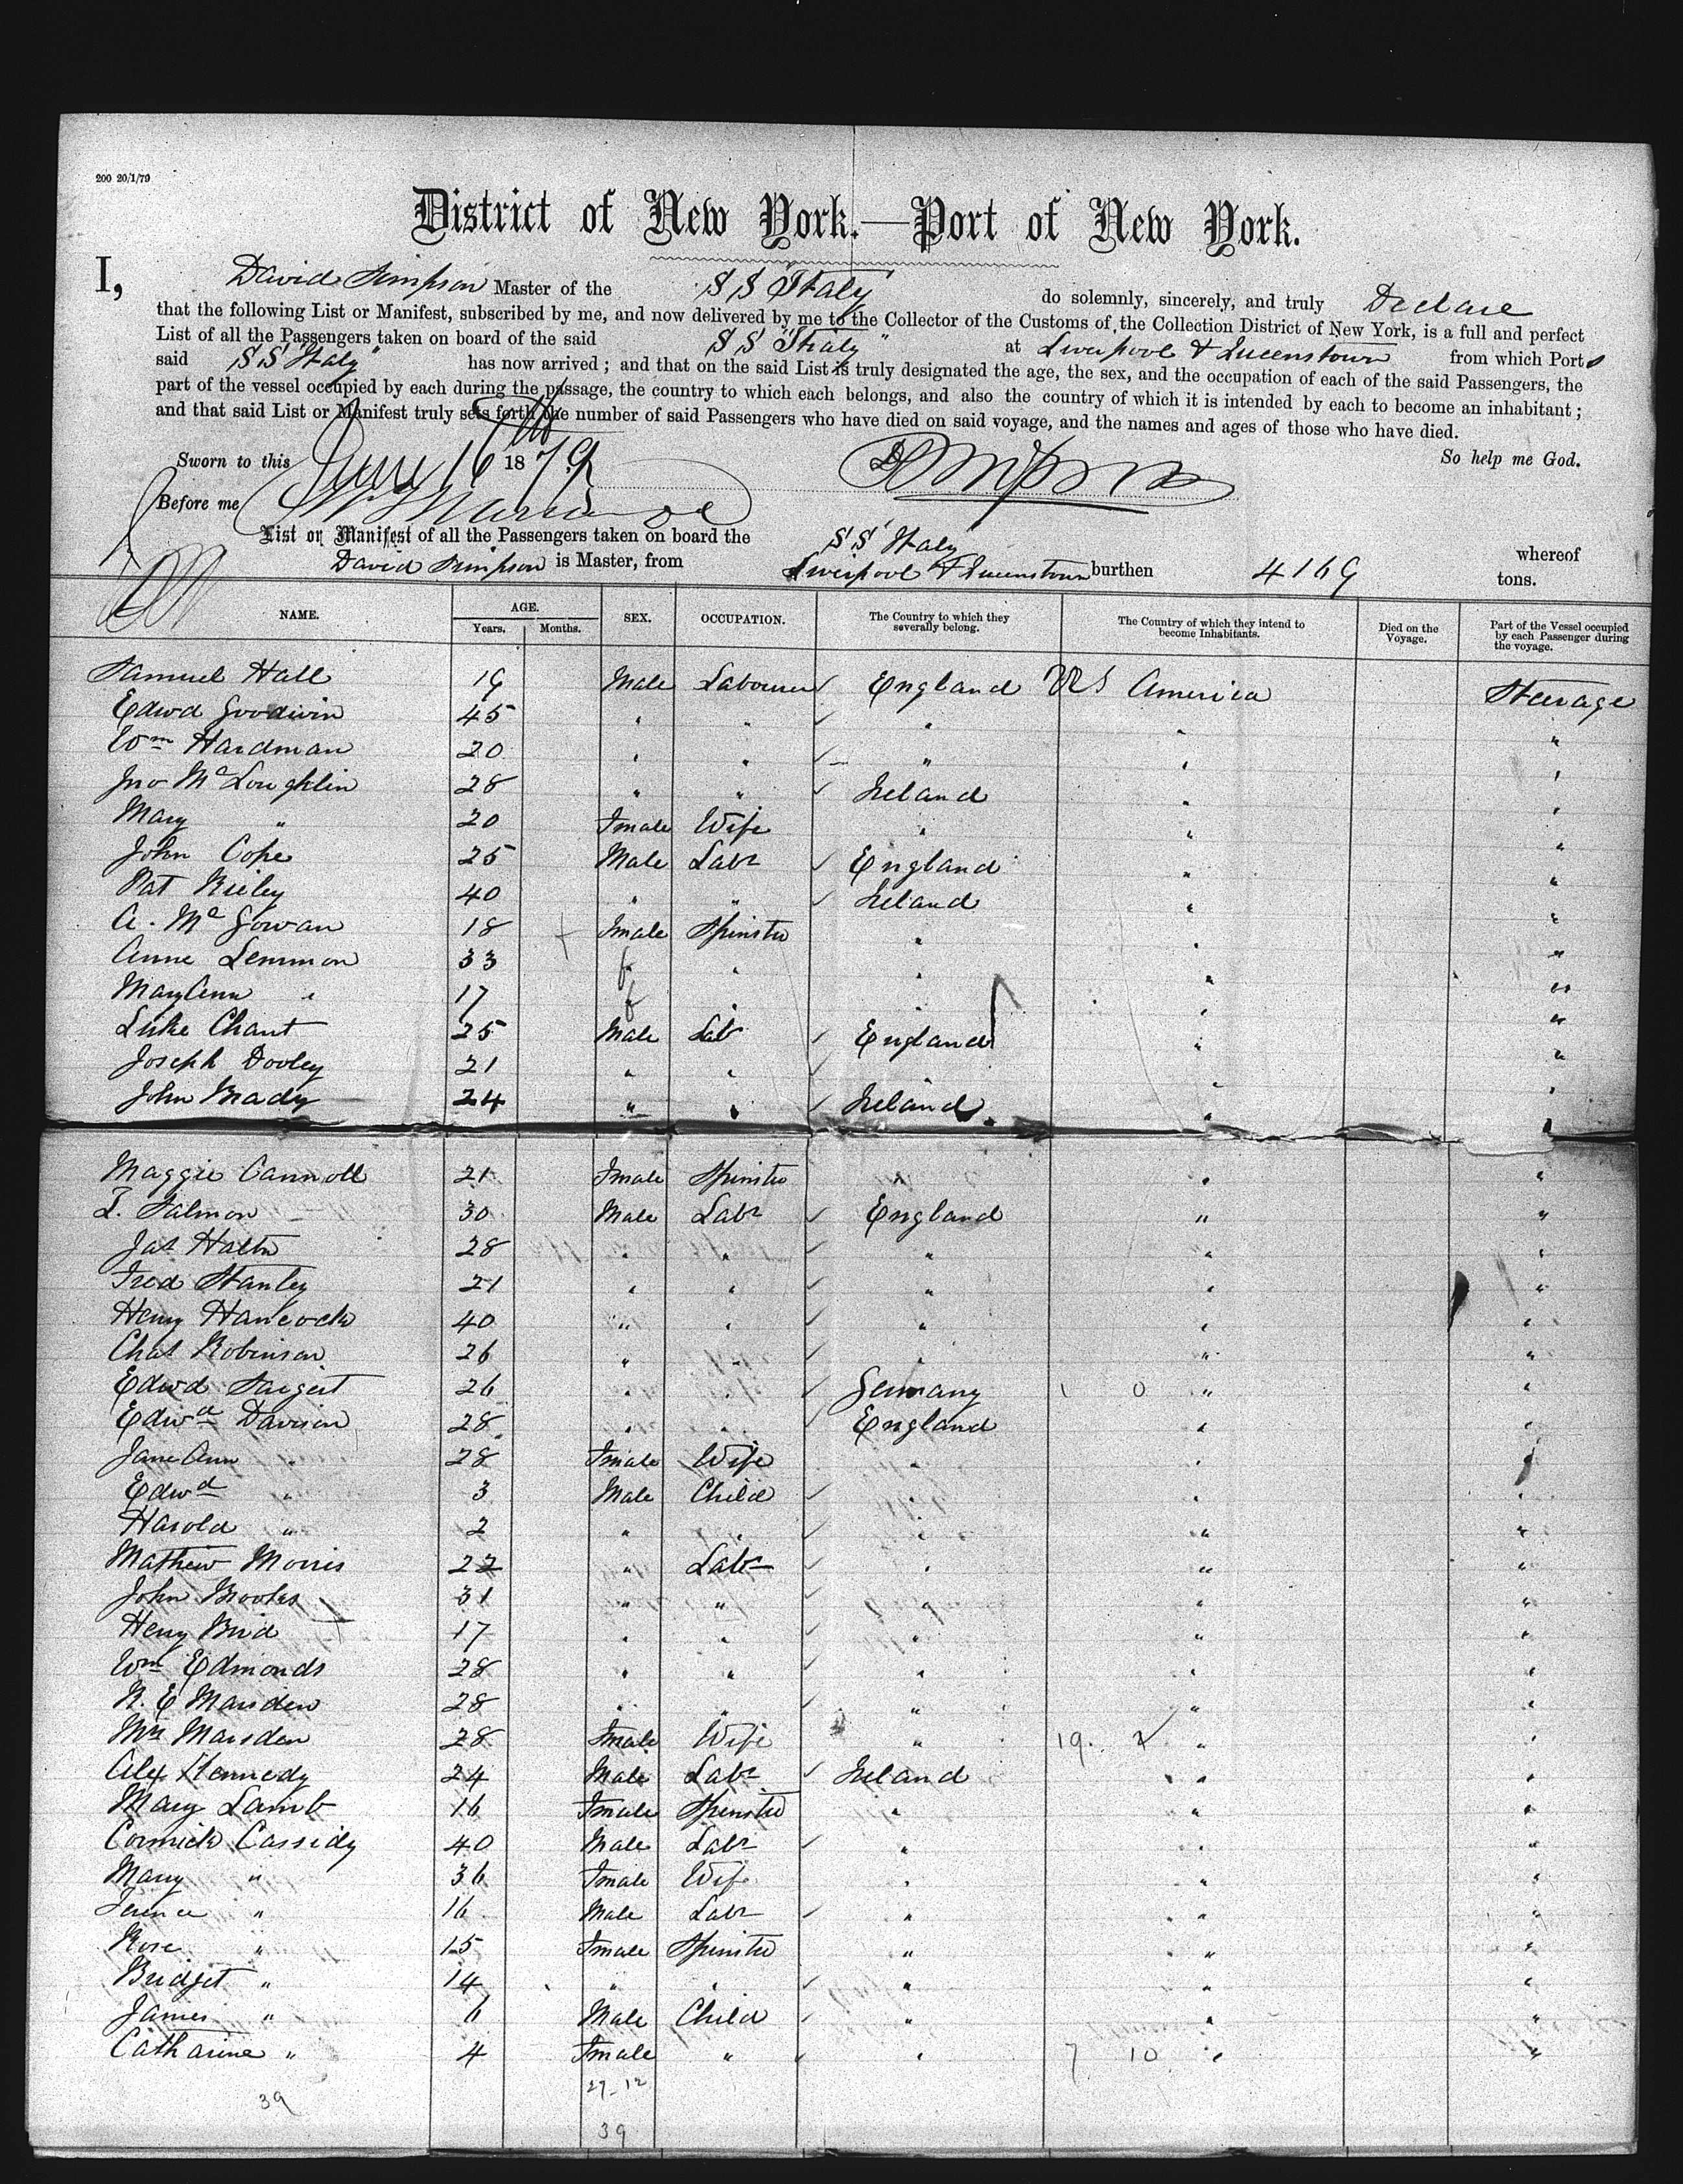 200 20/1/79
District of New York.—Port of New York.
I, David Simpson Master of the S S "Italy" do solemnly, sincerely, and truly Declare
that the following List or Manifest, subscribed by me, and now delivered by me to the Collector of the Customs of the Collection District of New York, is a full and perfect
List of all the Passengers taken on board of the said S S "Italy" at Liverpool & Queenstown from which Ports
said S S "Italy" has now arrived; and that on the said List is truly designated the age, the sex, and the occupation of each of the said Passengers, the
part of the vessel occupied by each during the passage, the country to which each belongs, and also the country of which it is intended by each to become an inhabitant;
and that said List or Manifest truly sets forth the number of said Passengers who have died on said voyage, and the names and ages of those who have died.
Sworn to this June 16th 1879 D Simpson So help me God.
Before me
List or Manifest of all the Passengers taken on board the S S Italy whereof
David Simpson is Master, from Liverpool & Queenstown burthen 4169 tons.
NAME. AGE. Years. Months. SEX. OCCUPATION. The Country to which they severally belong. The Country of which they intend to become Inhabitants. Died on the Voyage. Part of the Vessel occupied by each Passenger during the voyage.
Samuel Hall 19 Male Labourer England U S America Steerage
Edwd Goodwin 45 " " " " "
Wm Hardman 20 " " " " "
Jno McLoughlin 28 " " Ireland " "
Mary " 20 Female Wife " " "
John Cope 25 Male Labr England " "
Pat Rieley 40 " " Ireland " "
A. McGowan 18 Female Spinster " " "
Anne Lemmon 33 f " " " "
Mary Ann " 17 f " " " "
Luke Chant 25 Male Lab England " "
Joseph Dooley 21 " " " "
John Brady 24 " " Ireland " "
Maggie Cannoll 21 Female Spinster " " "
T. Salmon 30 Male Labr England " "
Jas Halton 28 " " " " "
Fred Stanley 21 " " " " "
Henry Hancock 40 " " " " "
Chas Robinson 26 " " " " "
Edwd Sargent 26 " " Germany 1 0 " "
Edwd Davison 28 " " England " "
Jane Ann " 28 Female Wife " " "
Edwd " 3 Male Child " " "
Harold " 2 " " " " "
Mathew Morris 22 " Labr " " "
John Brookes 31 " " " " "
Henry Bird 17 " " " " "
Wm Edmonds 28 " " " " "
N. E Marsden 28 " " " " "
Mrs Marsden 28 Female Wife " 19. 2 " "
Alex Kennedy 24 Male Labr Ireland " "
Mary Lamb 16 Female Spinster " " "
Cormick Cassidy 40 Male Labr " " "
Mary " 36 Female Wife " " "
Terence " 16 Male Labr " " "
Rose " 15 Female Spinster " " "
Bridget " 14 " " " " "
James " 6 Male Child " " "
Catharine " 4 Female " " 7 10 " "
27-12
39
39